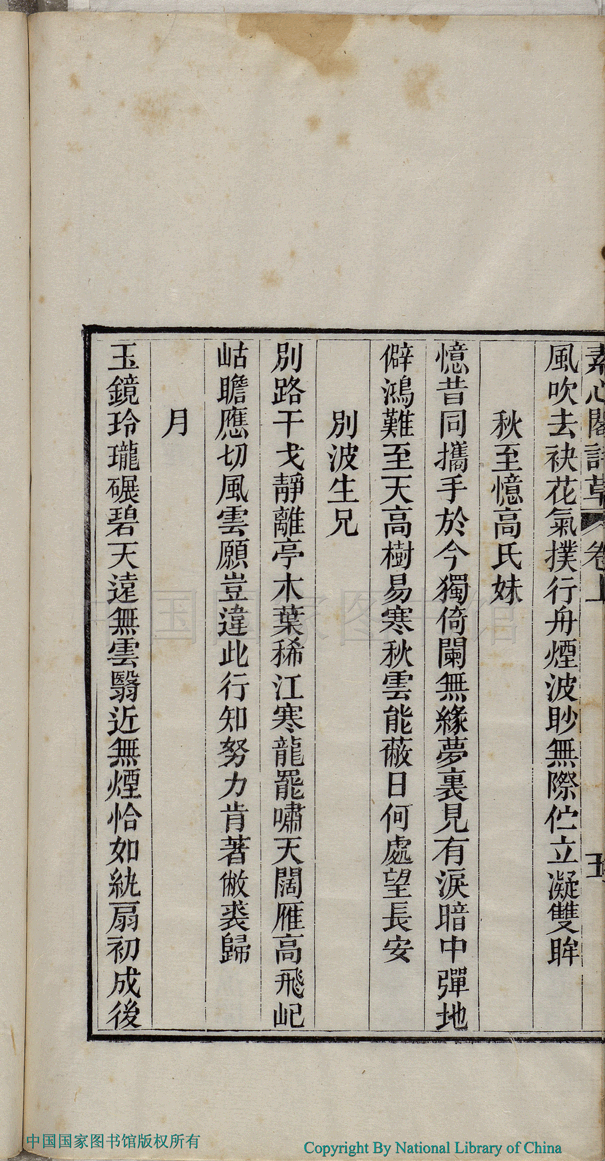 素心閣詩草 卷上 五
風吹去袂花氣撲行舟煙波眇無際伫立凝雙眸
秋至憶高氏妹
憶昔同攜手於今獨倚闌無緣夢裏見有淚暗中彈地
僻鴻難至天高樹易寒秋雲能蔽日何處望長安
別波生兄
別路干戈靜離亭木葉稀江寒龍罷嘯天闊雁高飛屺
岵瞻應切風雲願豈違此行知努力肯著敝裘歸
月
玉鏡玲瓏碾碧天遠無雲翳近無煙恰如紈扇初成後
中国国家图书馆
中国国家图书馆版权所有
Copyright By National Library of China